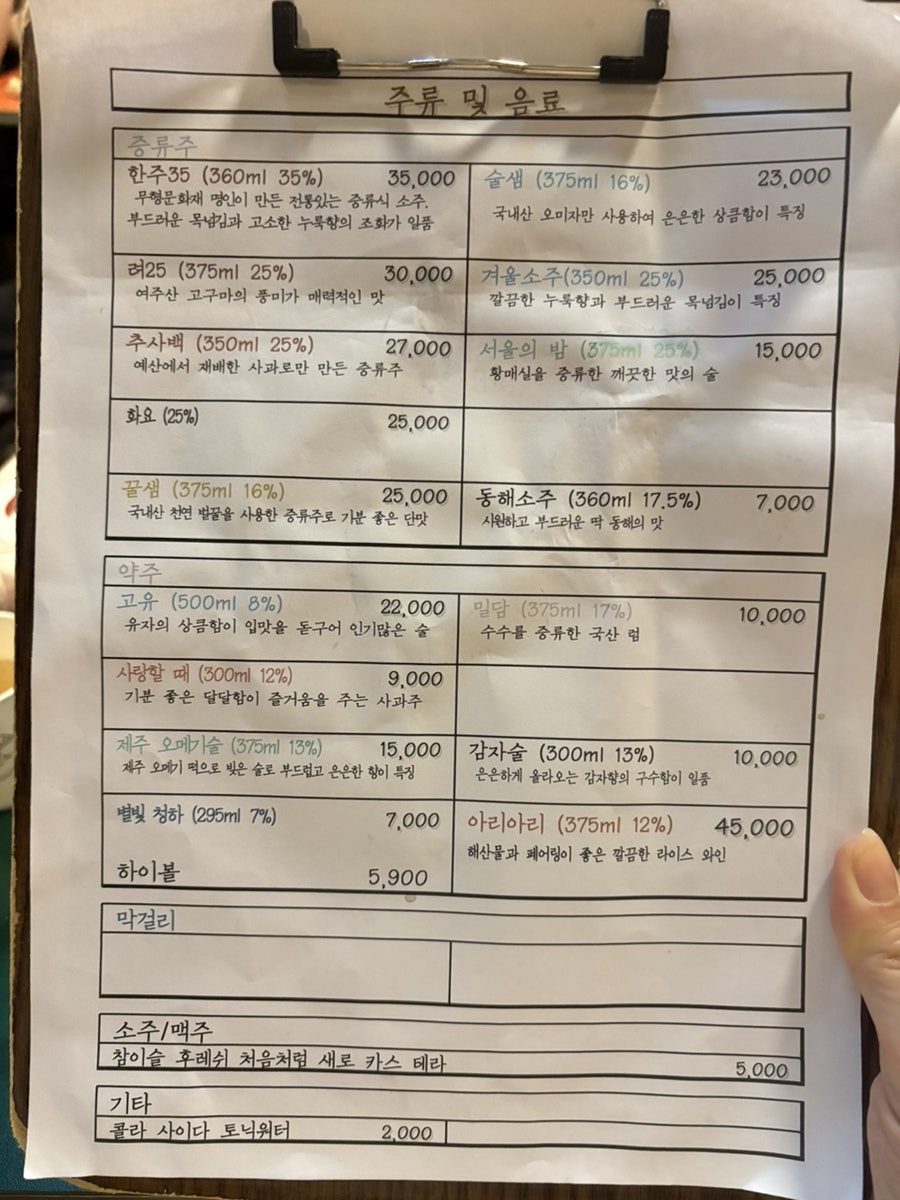 주류 및 음료
증류주
한주35 (360ml 35%) 35,000
무형문화재 명인이 만든 전통있는 증류식 소주.
부드러운 목넘김과 고소한 누룩향의 조화가 일품
술샘 (375ml 16%) 23,000
국내산 오미자만 사용하여 은은한 상큼함이 특징
려25 (375ml 25%) 30,000
여주산 고구마의 풍미가 매력적인 맛
겨울소주(350ml 25%) 25,000
깔끔한 누룩향과 부드러운 목넘김이 특징
추사백 (350ml 25%) 27,000
예산에서 재배한 사과로만 만든 증류주
서울의 밤 (375ml 25%) 15,000
황매실을 증류한 깨끗한 맛의 술
화요 (25%) 25,000
꿀샘 (375ml 16%) 25,000
국내산 천연 벌꿀을 사용한 증류주로 기분 좋은 단맛
동해소주 (360ml 17.5%) 7,000
시원하고 부드러운 딱 동해의 맛
약주
고유 (500ml 8%) 22,000
유자의 상큼함이 입맛을 돋구어 인기많은 술
밀담 (375ml 17%) 10,000
수수를 증류한 국산 럼
사랑할 때 (300ml 12%) 9,000
기분 좋은 달달함이 즐거움을 주는 사과주
제주 오메기술 (375ml 13%) 15,000
제주 오메기 떡으로 빚은 술로 부드럽고 은은한 향이 특징
감자술 (300ml 13%) 10,000
은은하게 올라오는 감자향의 구수함이 일품
별빛 청하 (295ml 7%) 7,000
하이볼 5,900
아리아리 (375ml 12%) 45,000
해산물과 페어링이 좋은 깔끔한 라이스 와인
막걸리
소주/맥주
참이슬 후레쉬 처음처럼 새로 카스 테라 5,000
기타
콜라 사이다 토닉워터 2,000